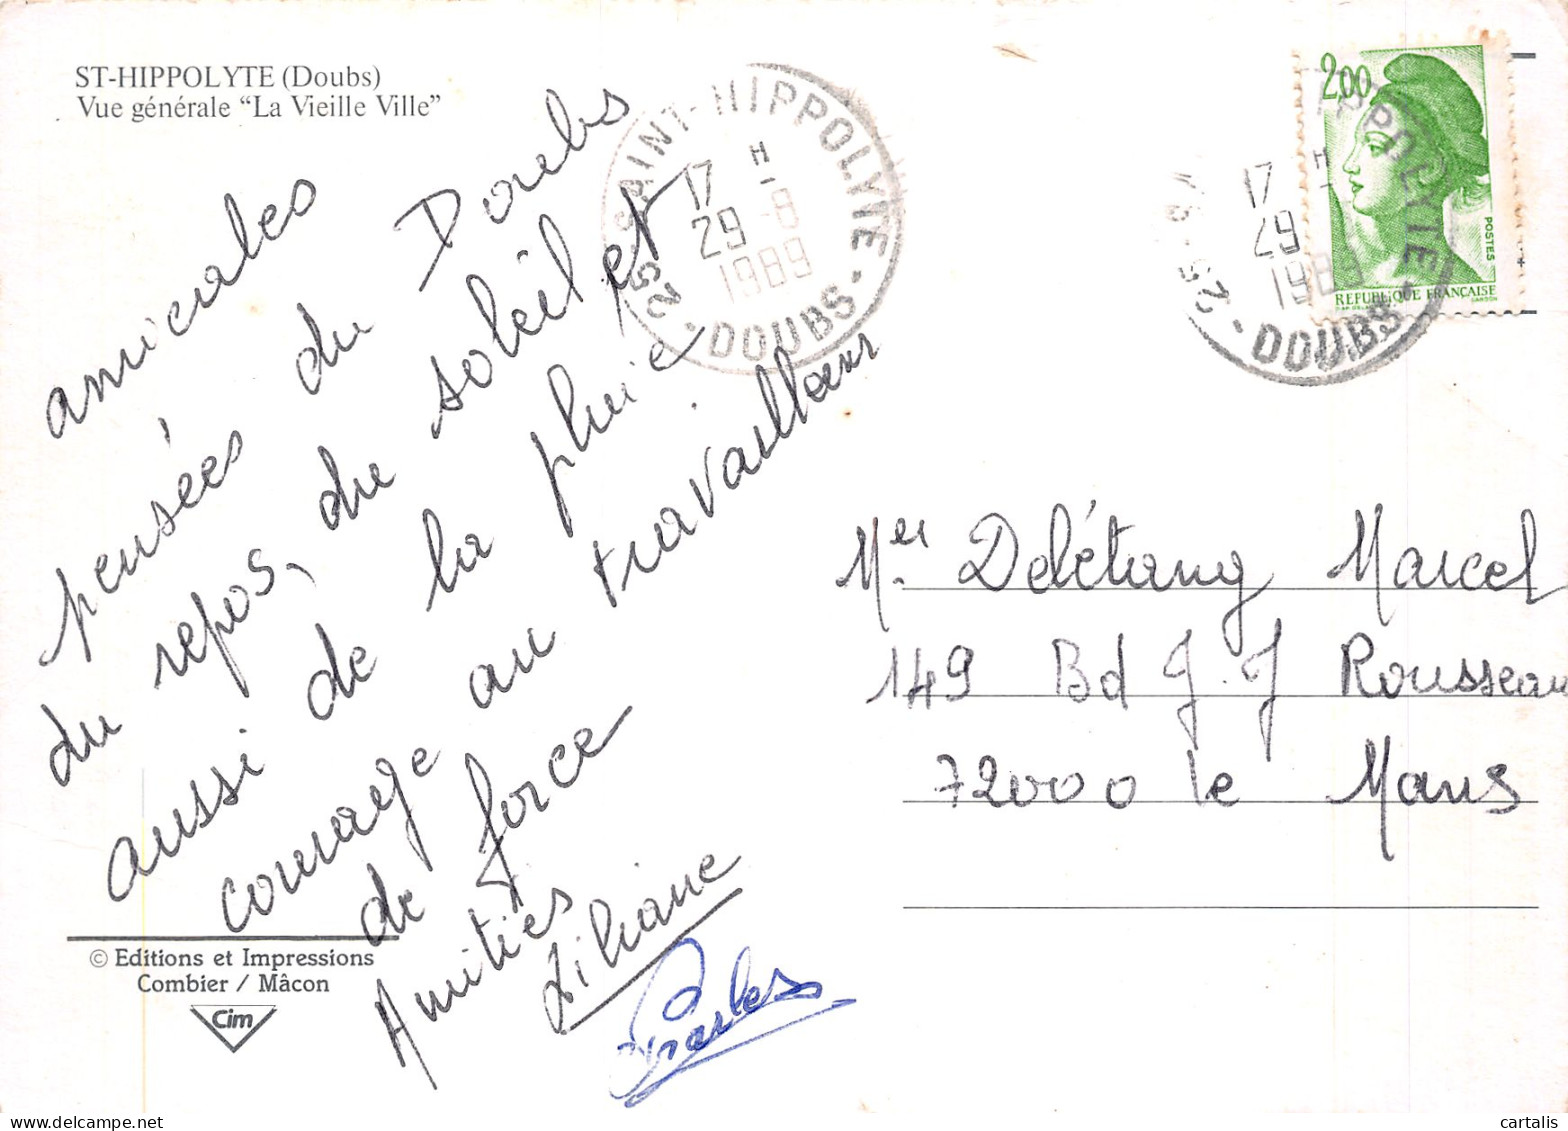 ST-HIPPOLYTE (Doubs)
Vue générale “La Vieille Ville”
amicales
pensées du Doubs
du repos, du soleil et
aussi de la pluie
courage au travailleur
de force
Amitiés
Liliane
Charles
© Editions et Impressions
Combier / Mâcon
Cim
25-SAINT-HIPPOLYTE-DOUBS-
17 H
29-8
1989
2,00
POSTES
REPUBLIQUE FRANÇAISE
17 H
29
1989
25 - IPPOLYTE - DOUBS-
Mer Delétang Marcel
149 Bd J.J Rousseau
72000 le Mans
cartalis